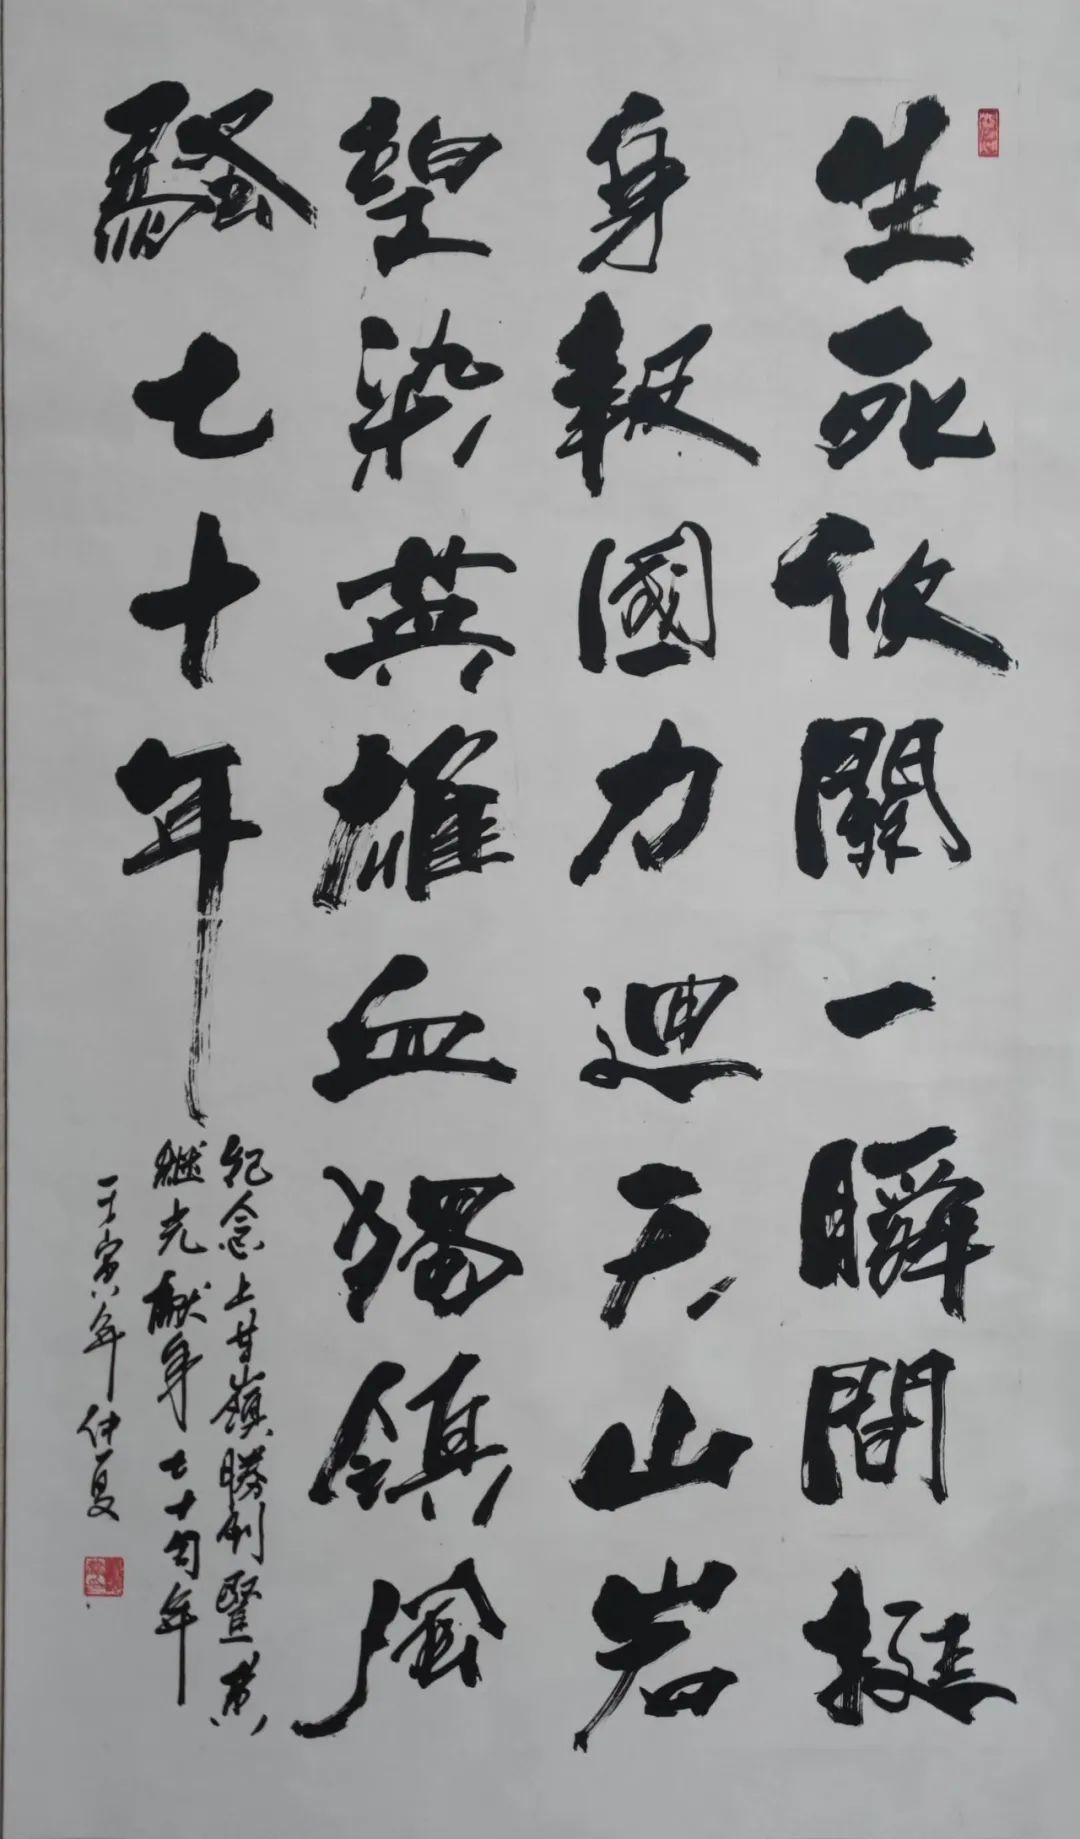 生死攸關一瞬間挺
身報國力迴天山岩
染英雄血獨領風
騷七十年
紀念上甘嶺勝利暨黃
继光献身七十周年
壬寅年仲夏